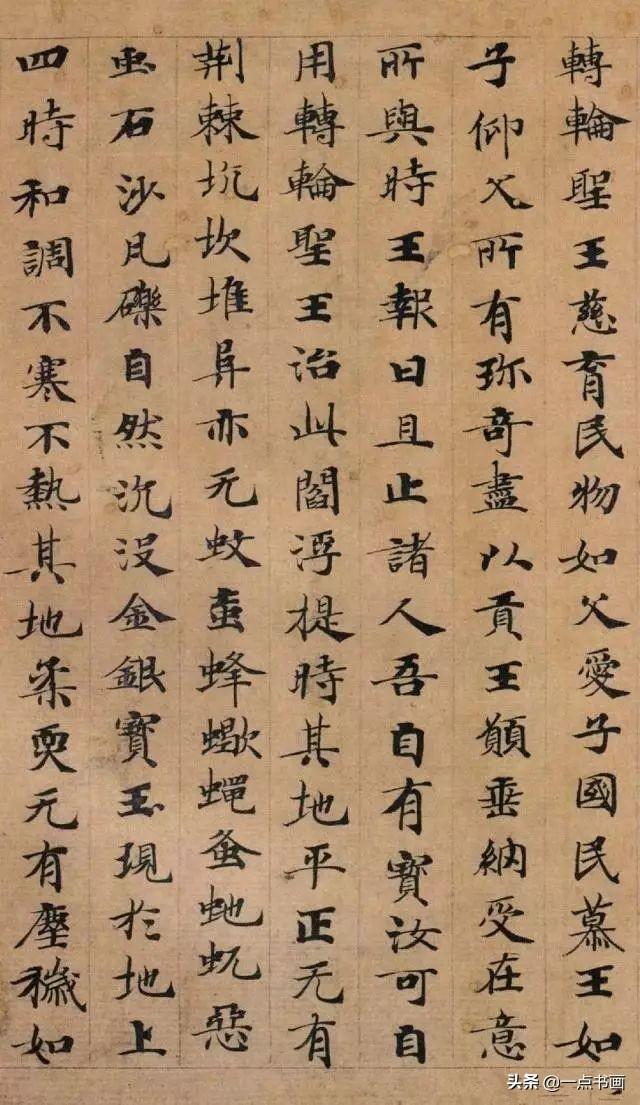 轉輪聖王慈育民物如父愛子國民慕王如
子仰父所有珎奇盡以貢王願垂納受在意
所與時王報曰且止諸人吾自有寶汝可自
用轉輪聖王治此閻浮提時其地平正无有
荆棘坑坎堆阜亦无蚊䖟蜂蠍蠅蚤虵蚖惡
虫石沙凡礫自然沉沒金銀寶玉現於地上
四時和調不寒不熱其地柔耎无有塵穢如
头条 @一点书画